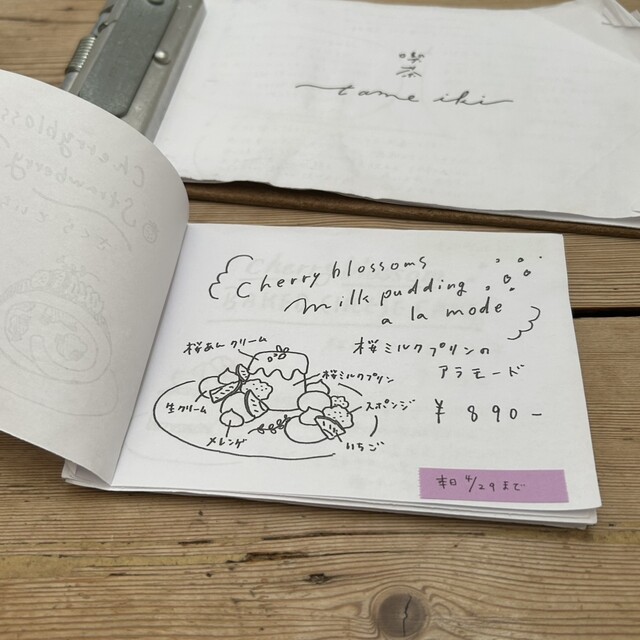 喫
茶
tame iki
Cherry blossoms
milk pudding
a la mode
桜ミルクプリンの
アラモード
¥890-
桜あんクリーム
桜ミルクプリン
生クリーム
スポンジ
メレンゲ
いちご
本日4/29まで
Cherry blossoms
Strawberry